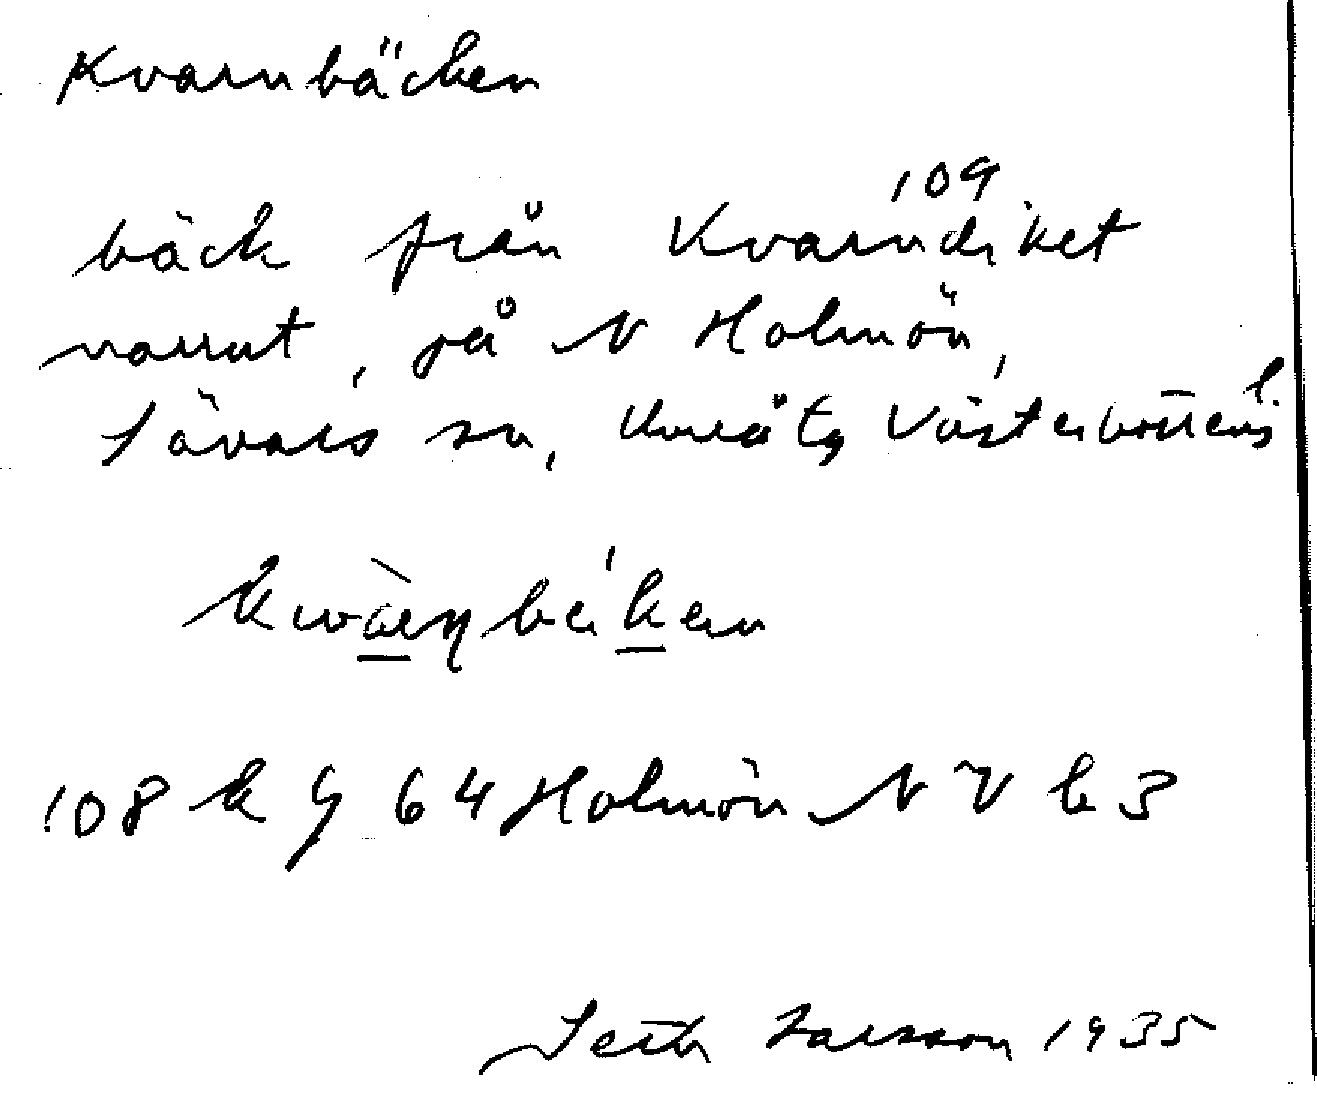 Kvarnbäcken
109
bäck från Kvarndiket
norrut, på N Holmön,
Sävars sn, Umeå tg Västerbottens l.
108 k 64 Holmön NV b 3
Seth Larsson 1935